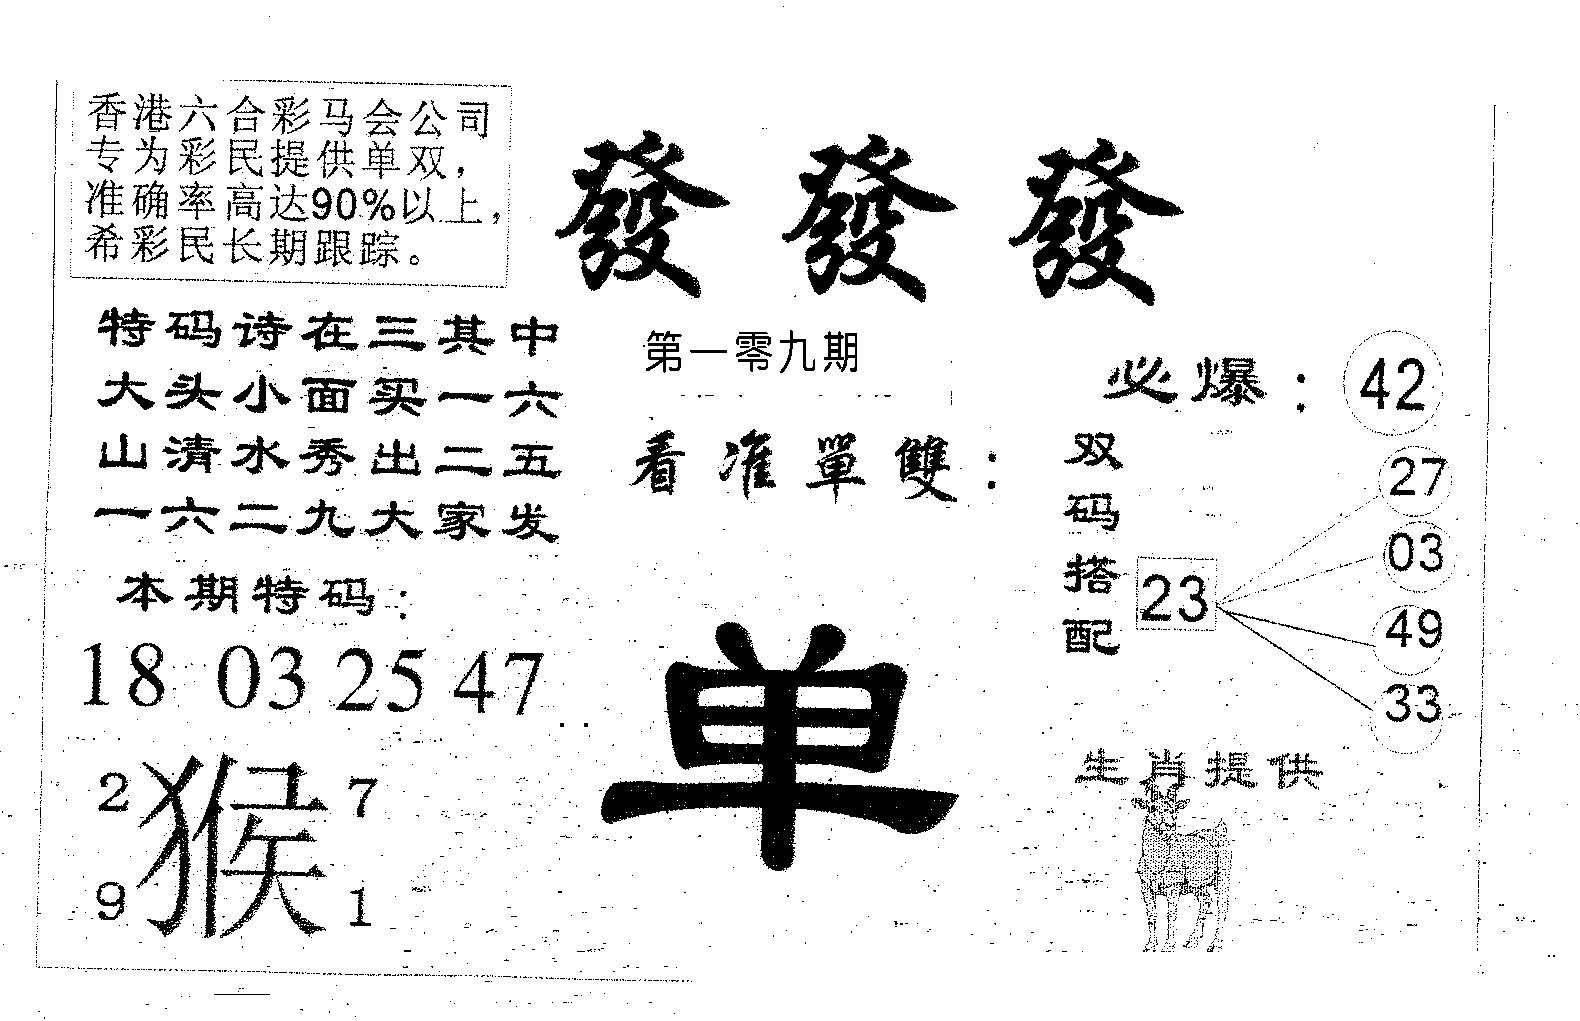 香港六合彩马会公司
专为彩民提供单双，
准确率高达90%以上，
希彩民长期跟踪。
發發發
第一零九期
特码诗在三其中
大头小面买一六
山清水秀出二五
一六二九大家发
本期特码：
18 03 25 47
2 7
猴
9 1
看准單雙：
单
必爆： 42
双码搭配
23
27
03
49
33
生肖提供